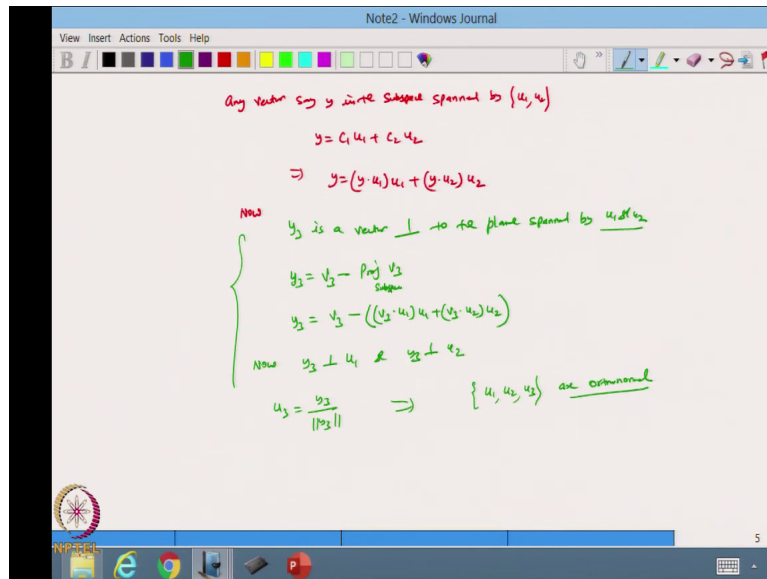 Note2 - Windows Journal
View Insert Actions Tools Help
B I
Any vector say y in the subspace spanned by {u₁, u₂}
y = c₁ u₁ + c₂ u₂
⇒ y = (y · u₁) u₁ + (y · u₂) u₂
Now
y₃ is a vector ⊥ to the plane spanned by u₁ & u₂
y₃ = v₃ − Proj v₃
Subspace
y₃ = v₃ − ((v₃ · u₁) u₁ + (v₃ · u₂) u₂)
Now y₃ ⊥ u₁ & y₃ ⊥ u₂
u₃ = y₃ / ||y₃|| ⇒ {u₁, u₂, u₃} are orthonormal
5
NPTEL